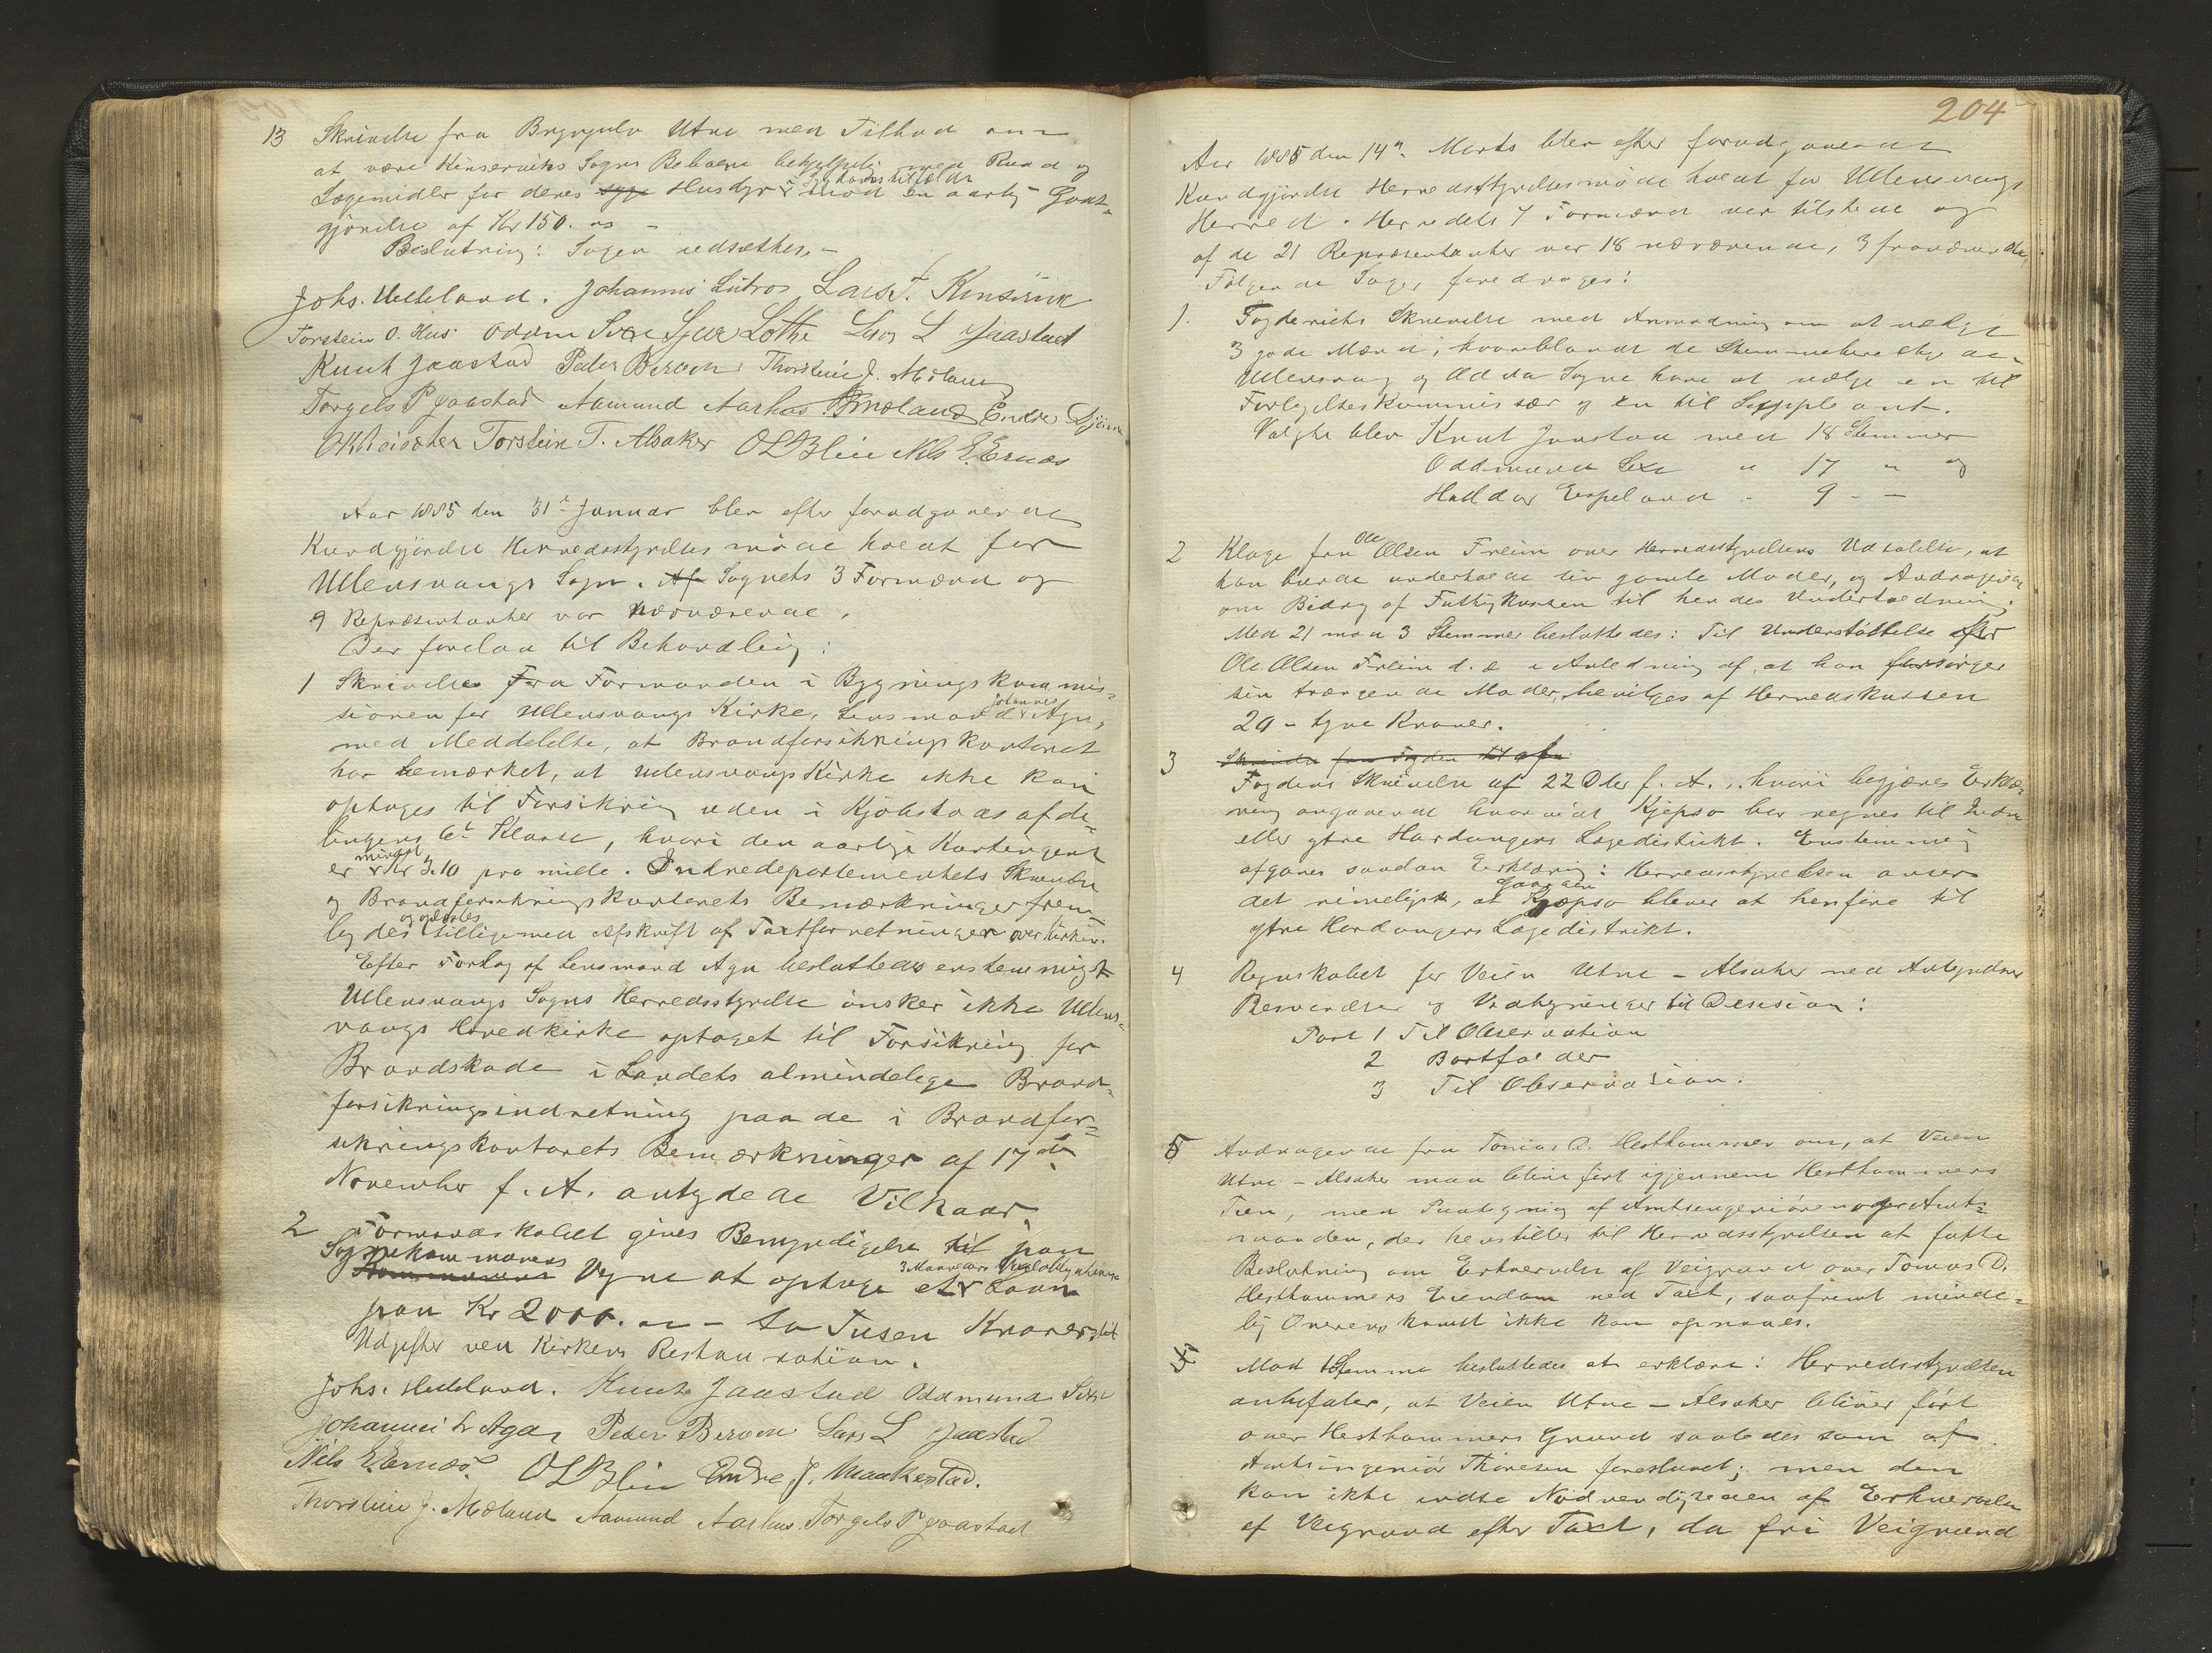 13 Skrivelse fra Brynjulv Utne med Tilbud om
at være Kinserviks Sogns Beboere behjelpelig med Raad og
Lægemidler for deres syge Husdyr i Sygdomstilfælde mod en aarlig Godt-
gjörelse af Kr 150.
Beslutning: Sagen udsættes.
Johs. Helleland. Johannis Lutro Lars T. Kinservik
Torstein O. Hus Odd Sexe Sjur Lothe Lars L Jaastad
Knut Jaastad Peder Berven Thorstein J. Mæland
Torgels P Jaastad Aamund Aarhus Endre Djönne
Torstein T. Alsaker O L Blie Nils E. Ernæs
Aar 1885 den 31te Januar blev efter forudgaaende
Kundgjörelse Herredsstyrelsesmöde holdt for
Ullensvangs Sogn. Af Sognets 3 Formænd og
9 Repræsentanter var nærværende.
Der forelaa til Behandling:
1 Skrivelse fra Formanden i Bygningskommis-
sionen for Ullensvangs Kirke, Lensmand Johannes Aga,
med Meddelelse, at Brandforsikringskontoret
har bemærket, at Ullensvangs Kirke ikke kan
optages til Forsikring uden i Kjöbstadsafde-
lingens 6te Klasse, hvori den aarlige Kontingent
er mindst Kr 3.10 pro mille. Indredepartementets Skrivelse
og Brandforsikringskontorets Bemærkninger frem-
lagdes og oplæstes tilligemed Afskrift af Taxtforretningen over Kirken.
Efter Forslag af Lensmand Aga besluttedes enstemmigt
Ullensvangs Sogns Herredsstyrelse önsker ikke Ullens-
vangs Hovedkirke optaget til Forsikring for
Brandskade i Landets almindelige Brand-
forsikringsindretning paa de i Brandfor-
sikringskontorets Bemærkninger af 17de
November f. A. antydede Vilkaar.
2 Formandskabet gives Bemyndigelse til paa
Sognekommunens Kommunens Vegne at optage et 3 Maaneders Laan
paa Kr 2000. - to Tusen Kroner til
Udgifter ved Kirkens Restauration.
Johs. Helleland. Knut Jaastad Oddmund Sexe
Johannes L Aga Peder Berven Lars L Jaastad
Nils E. Ernæs. O L Blie Endre J. Maakestad.
Thorstein J. Mæland Aamund Aarhus Torgels P Jaastad
204
Aar 1885 den 14de Marts blev efter forudgaaende
Kundgjörelse Herredsstyrelsesmöde holdt for Ullensvangs
Herred. Herredets 7 Formænd var tilstede og
af de 21 Repræsentanter var 18 nærværende, 3 fraværende.
Fölgende Sager foredroges:
1. Fogderiets Skrivelse med Anmodning om at vælge
3 gode Mænd, hvoriblandt de Stemmeberettigede i
Ullensvang og Odda Sogne have at vælge en til
Forligelseskommissær og en til Suppleant.
Valgte blev Knut Jaastad med 18 Stemmer
Oddmund Sexe " 17 " og
Halldor Espeland - 9 - -
2 Klage fra Ole Olsen Freim over Herredsstyrelsens Udtalelse, at
han burde underholde sin gamle Moder, og Andragende
om Bidrag af Fattigkassen til hendes Underholdning.
Med 21 mod 3 Stemmer besluttedes: Til Understöttelse for
Ole Olsen Freim d. e i Anledning af, at han forsörger
sin trængende Moder, bevilges af Herredskassen
20 - tyve Kroner.
3 Skrivelse fra Fogden til afgi
Fogdens Skrivelse af 22 Dbr f. A., hvori begjæres Erklæ-
ring angaaende hvorvidt Kjepsö bör regnes til Indre
eller ytre Hardangers Lægedistrikt. Enstemmig
afgaves saadan Erklæring: Herredsstyrelsen anser
det rimeligst, at Gaarden Kjæpsö bliver at henföre til
ytre Hardangers Lægedistrikt.
4 Regnskabet for Veien Utne - Alsaker med Antegnelser
Besvarelser og Vedtegninger til Desision:
Post 1 Til Observation
2 Bortfalder
3 Til Observasion.
5 Andragende fra Tomas D. Hesthammer om, at Veien
Utne - Alsaker maa blive fört igjennem Hesthammers
Tun, med Paategning af Amtsingeniören og Amt-
manden, der henstiller til Herredsstyrelsen at fatte
Beslutning om Erhvervelse af Veigrund over Tomas D.
Hesthammers Eiendom ved Taxt, saafremt minde-
lig Overenskomst ikke kan opnaaes.
Mod 1 Stemme besluttedes at erklære: Herredsstyrelsen
anbefaler, at Veien Utne - Alsaker bliver fört
over Hesthammers Grund saaledes som af
Amtsingeniör Thoresen foreslaaet; men den
kan ikke indse Nödvendigheden af Erhvervelse
af Veigrund efter Taxt, da fri Veigrund